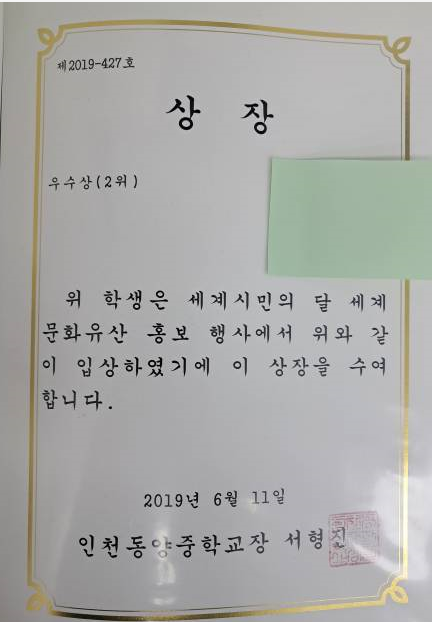 제2019-427호
상 장
우수상(2위)
위 학생은 세계시민의 달 세계
문화유산 홍보 행사에서 위와 같
이 입상하였기에 이 상장을 수여
합니다.
2019년 6월 11일
인천동양중학교장 서형진